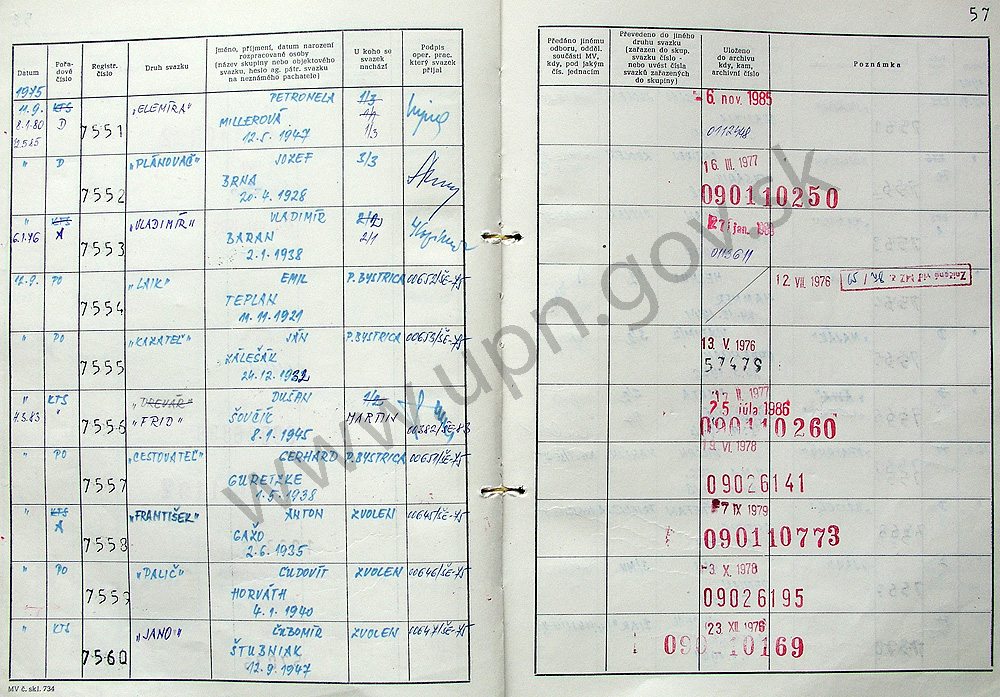 57
Datum
Pořadové číslo
Registr. číslo
Druh svazku
Jméno, příjmení, datum narození rozpracované osoby
(název skupiny nebo objektového svazku, heslo ag. pátr. svazku na neznámého pachatele)
U koho se svazek nachází
Podpis oper. prac. který svazek přijal
Předáno jinému odboru, odděl. součásti MV, kdy, pod jakým čís. jednacím
Převedeno do jiného druhu svazku (zařazen do skup. svazku číslo - nebo uvést čísla svazků zařazených do skupiny)
Uloženo do archivu kdy, kam, archivní číslo
Poznámka
1975
11.9. KTS „ELEMÍRA" PETRONELA 1/3
8.1.80 D 7551 MILLEROVÁ
12.5.1947 1/3
6. nov. 1985
" D „PLÁNOVAČ" JOZEF 3/3
7552 BRNA
20.4.1928
16. III. 1977
090110250
" KTS „VLADIMÍR" VLADIMÍR
6.1.76 A 7553 BARAN 2/1
2.1.1938
0113611
PO „LAIK" EMIL P.BYSTRICA 00652/SE-75
7554 TEPLAN
11.11.1921
12. VII. 1976
" PO „KAZATEĽ" JÁN P.BYSTRICA 00653/SE-75
7555 ZÁLEŠÁK
24.12.1932
13. V. 1976
57478
" KTS „DREVÁR" DUŠAN 1/2
4.3.83 " 7556 „FRID" ŠOVČÍK MARTIN
8.1.1945
II. 1977
25 júla 1986
090110260
" PO „CESTOVATEĽ" GERHARD P.BYSTRICA 00651/SE-75
7557 GURETZKE
1.5.1938
19. VI. 1978
09026141
" KTS „FRANTIŠEK" ANTON ZVOLEN 00645/SE-75
A 7558 GAŽO
2.6.1935
7 IX 1979
090110773
" PO „PALIČ" ĽUDOVÍT ZVOLEN 00646/SE-75
7559 HORVÁTH
4.1.1940
-3. X. 1978
09026195
" KTS „JANO" ĽUBOMÍR ZVOLEN 00647/SE-75
7560 ŠTUBNIAK
12.9.1947
23. XII. 1976
090-10169
MV č. skl. 734
www.upn.gov.sk